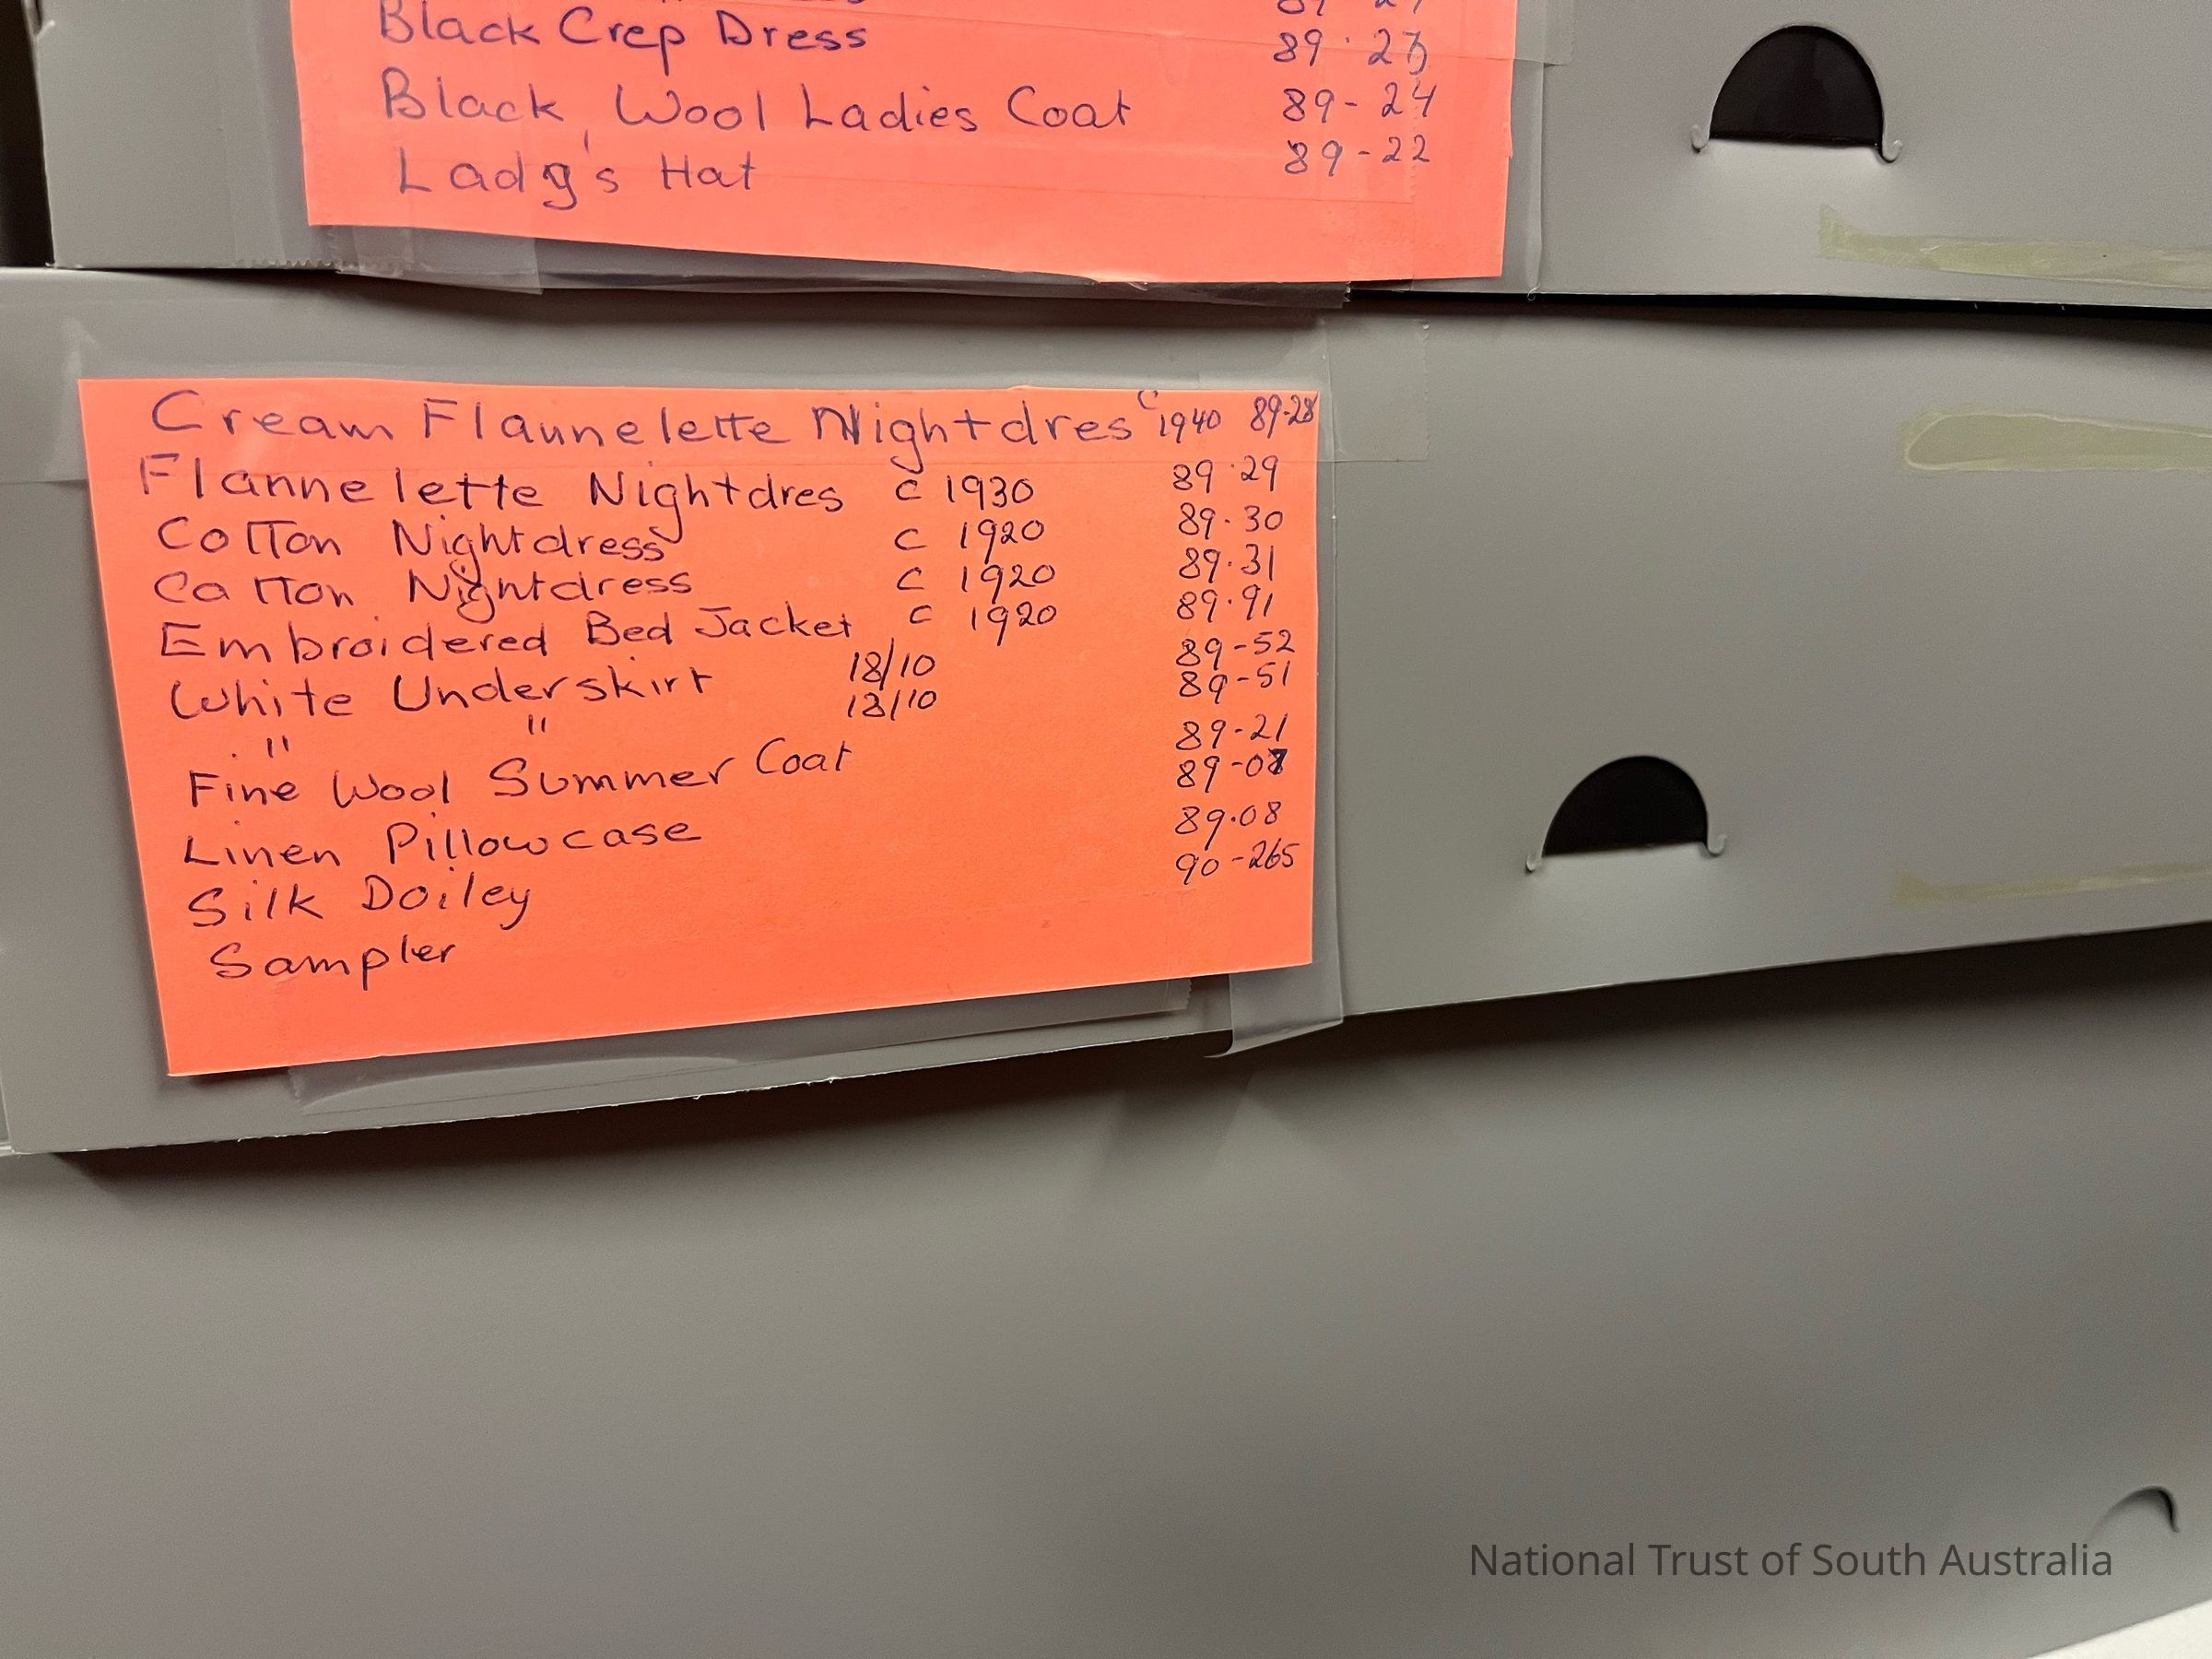 Black Crep Dress 89·23
Black Wool Ladies Coat 89-24
Lady's Hat 89-22
Cream Flannelette Nightdres c 1940 89-28
Flannelette Nightdres c 1930 89·29
Cotton Nightdress c 1920 89·30
Cotton Nightdress c 1920 89·31
Embroidered Bed Jacket c 1920 89·91
White Underskirt 18/10 89-52
" " 18/10 89-51
Fine Wool Summer Coat 89-21
Linen Pillowcase 89-07
Silk Doiley 89·08
Sampler 90-265
National Trust of South Australia